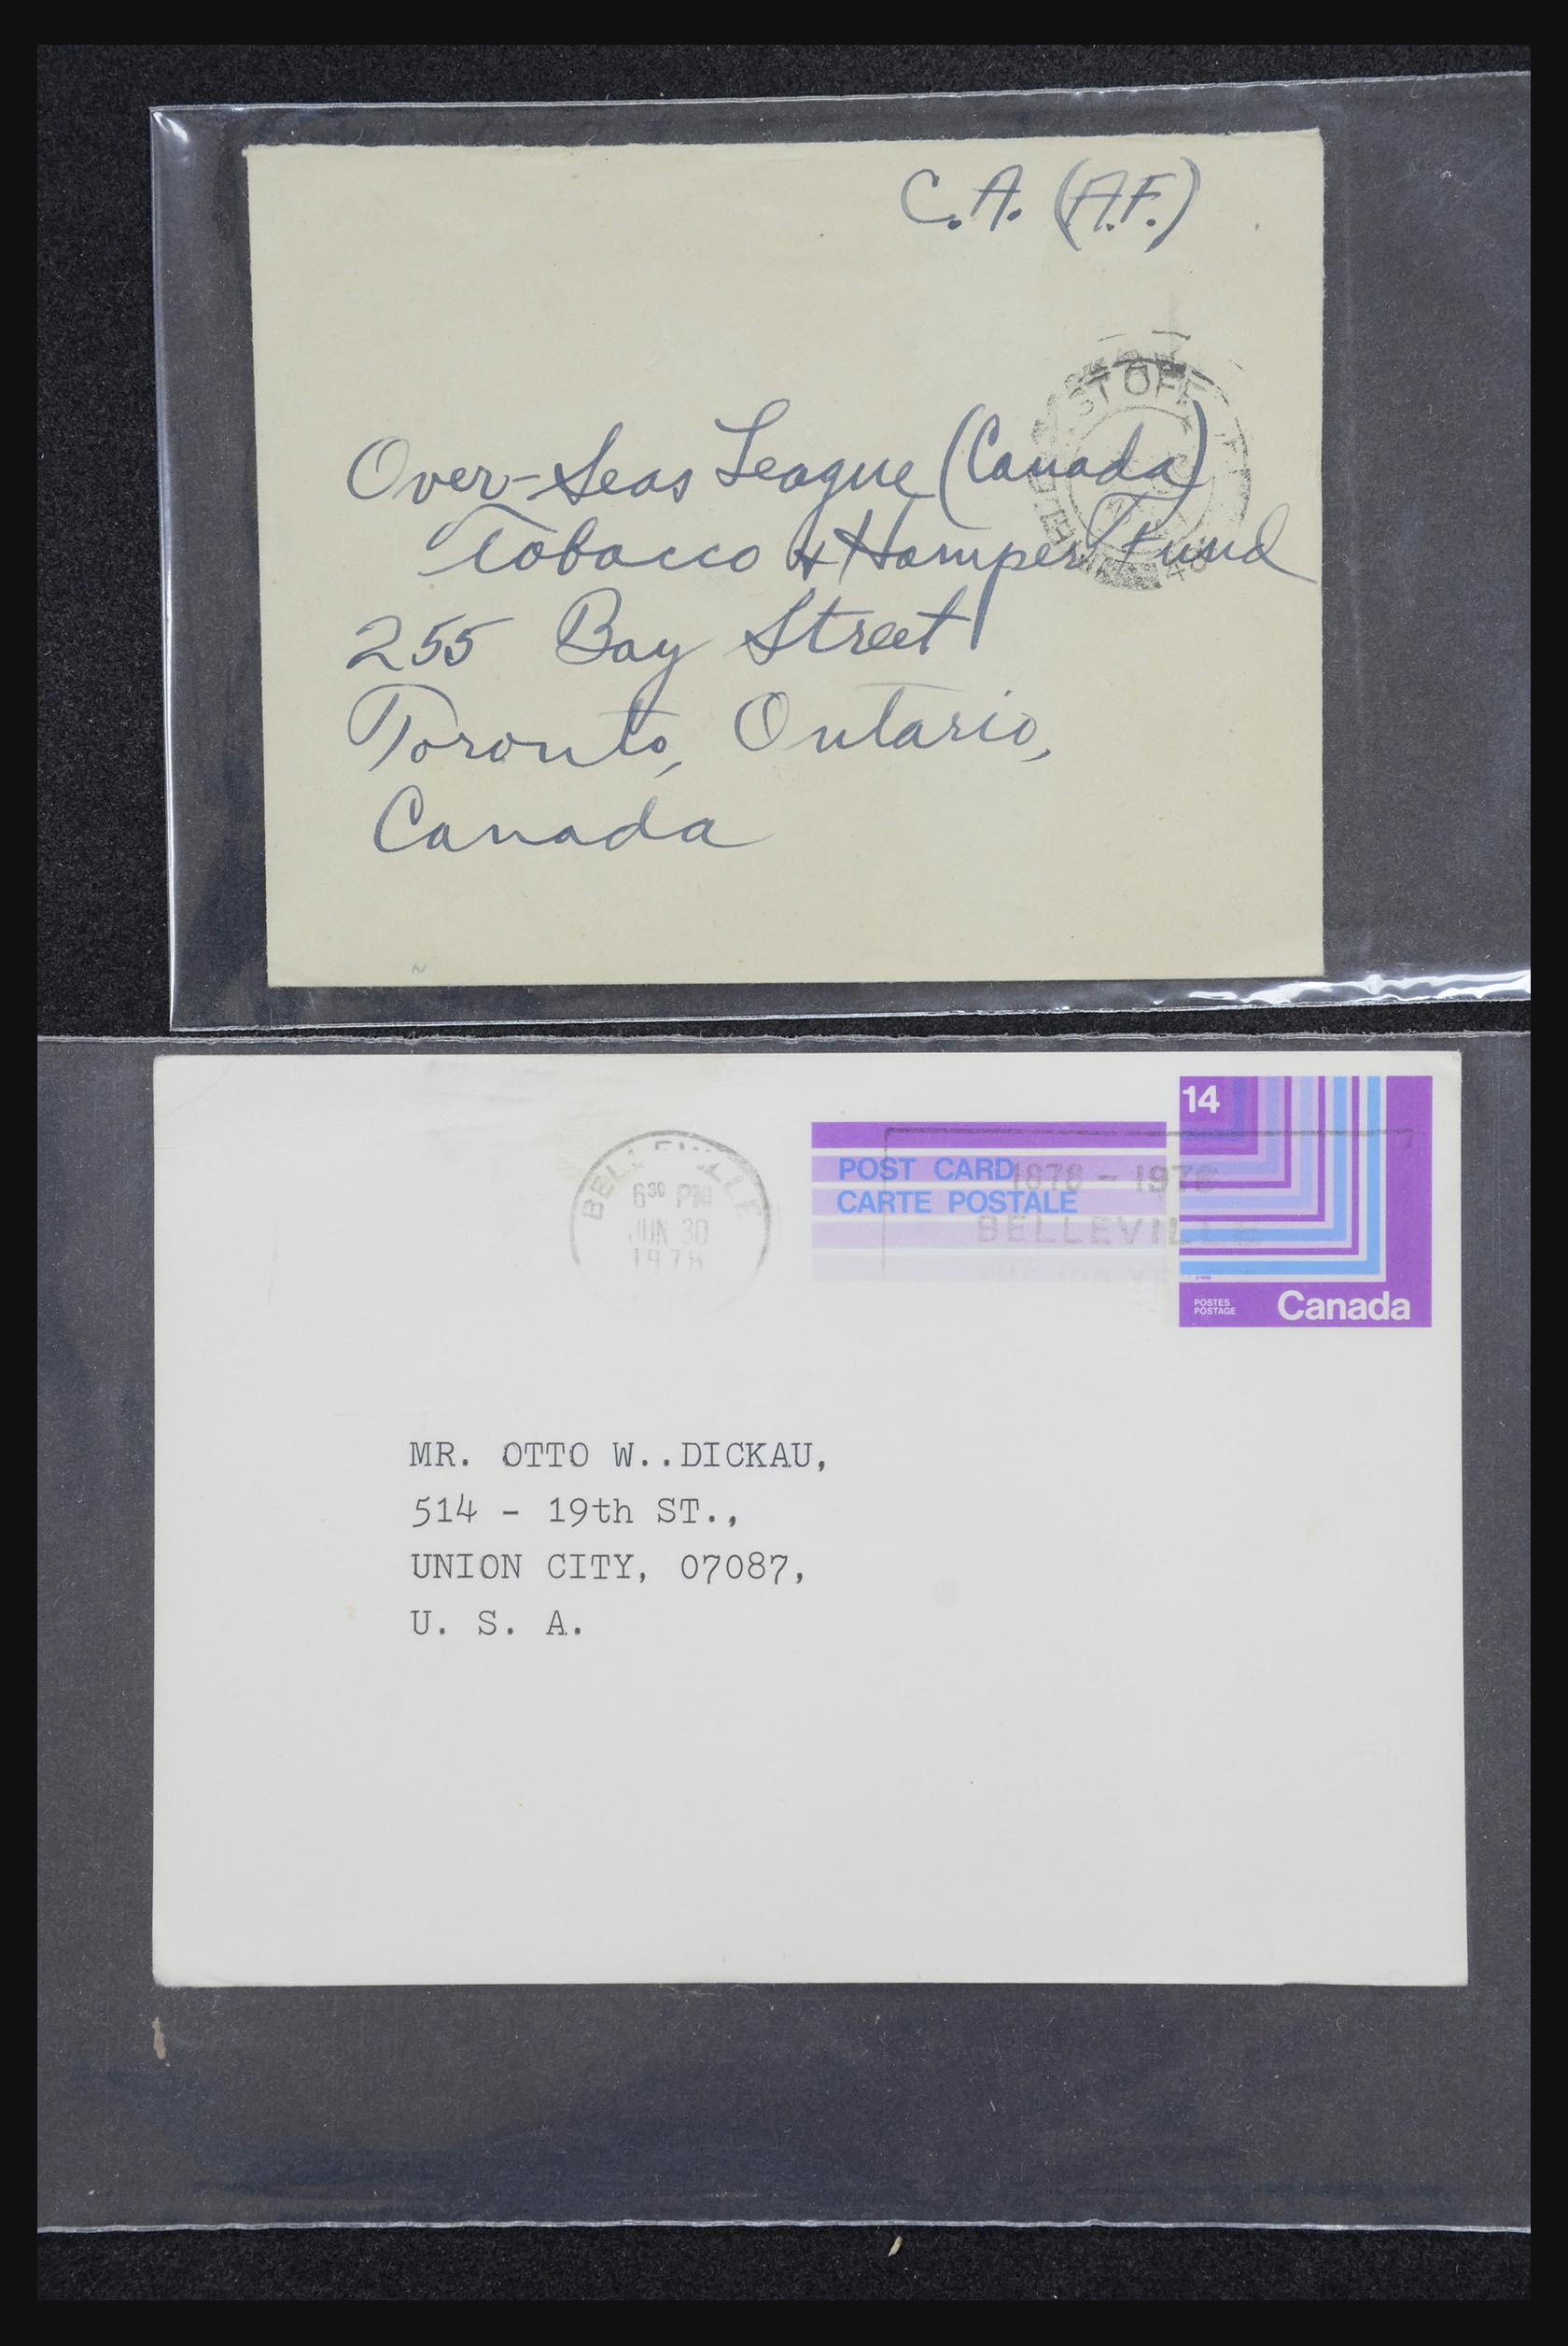 C.A. (A.F.)
ST OFF
Over-Seas League (Canada)
Tobacco & Hamper Fund
255 Bay Street
Toronto, Ontario,
Canada
BELLEVILLE
6³⁰ PM
JUN 30
1978
POST CARD
CARTE POSTALE
1878 - 1978
BELLEVILLE
14
POSTES
POSTAGE
Canada
MR. OTTO W..DICKAU,
514 - 19th ST.,
UNION CITY, 07087,
U. S. A.